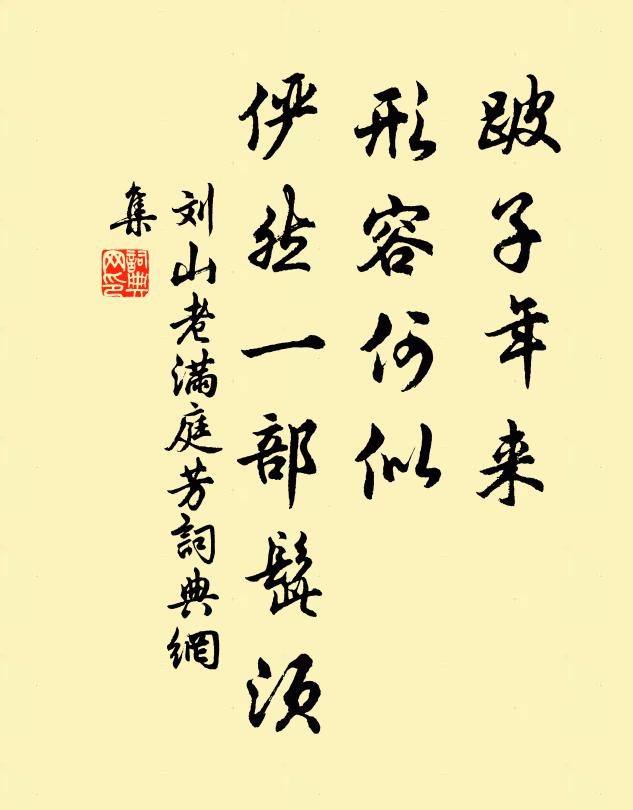 跛子年来
形容何似
俨然一部髭须
刘山老满庭芳詞典網
集
詞典
网印